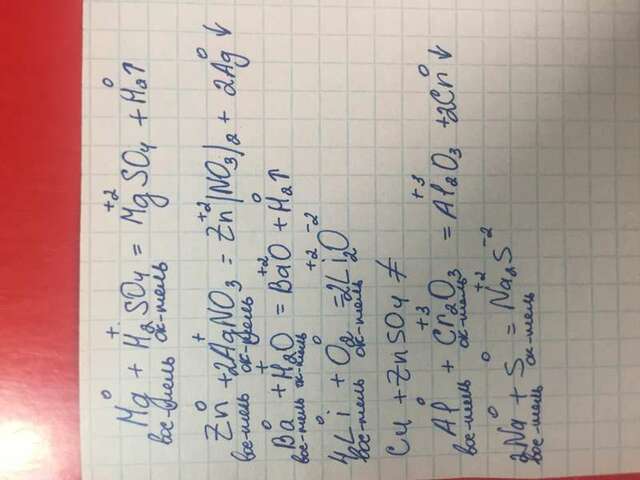 0 + +2 0
Mg + H₂SO₄ = MgSO₄ + H₂↑
вос-тель ок-тель
0 + +2 0
Zn + 2AgNO₃ = Zn(NO₃)₂ + 2Ag↓
вос-тель ок-тель
0 + +2 0
Ba + H₂O = BaO + H₂↑
вос-тель ок-тель
0 0 +2 -2
4Li + O₂ = 2Li₂O
вос-тель ок-тель
Cu + ZnSO₄ ≠
0 +3 +3 0
Al + Cr₂O₃ = Al₂O₃ + 2Cr↓
вос-тель ок-тель
0 0 +2 -2
2Na + S = Na₂S
вос-тель ок-тель